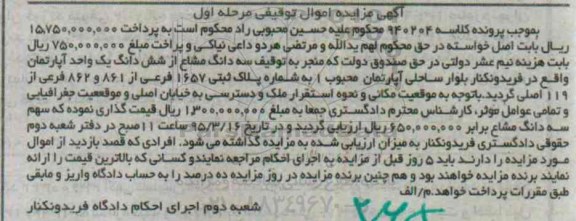 آگهی مزایده اموال توقیفی مرحله اول
بموجب پرونده کلاسه ۹۴۰۲۰۴ محکوم علیه حسین محبوبی راد محکوم است به پرداخت ۱۵,۷۵۰,۰۰۰,۰۰۰
ریال بابت اصل خواسته در حق محکوم لهم یدالله و مرتضی هردو داعی نیاکی و پراخت مبلغ ۷۵۰,۰۰۰,۰۰۰ ریال
بابت هزینه نیم عشر دولتی در حق صندوق دولت که منجر به توقیف سه دانگ مشاع از شش دانگ یک واحد آپارتمان
واقع در فریدونکنار بلوار ساحلی آپارتمان محبوب ۱ به شماره پلاک ثبتی ۱۶۵۷ فرعی از ۸۶۱ و ۸۶۲ فرعی از
۱۱۹ اصلی گردید.باتوجه به موقعیت مکانی و نحوه استقرار ملک و دسترسی به خیابان اصلی و موقعیت جغرافیایی
و تمامی عوامل موثر، کارشناس محترم دادگستری جمعا به مبلغ ۱,۳۰۰,۰۰۰,۰۰۰ ریال قیمت گذاری نموده که سهم
سه دانگ مشاع برابر ۶۵۰,۰۰۰,۰۰۰ ریال ارزیابی گردید و در تاریخ ۹۵/۳/۱۶ ساعت ۱۱ صبح در دفتر شعبه دوم
حقوقی دادگستری فریدونکنار به میزان ارزیابی شده به مزایده گذاشته می شود. افرادی که قصد بازدید از اموال
مورد مزایده را دارند باید ۵ روز قبل از مزایده به اجرای احکام مراجعه نمایندو کسانی که بالاترین قیمت را ارائه
نمایند برنده مزایده خواهند بود و هم چنین برنده مزایده در روز مزایده ده درصد را به حساب دادگاه واریز و مابقی
طبق مقررات پرداخت خواهد.م/الف
شعبه دوم اجرای احکام دادگاه فریدونکنار